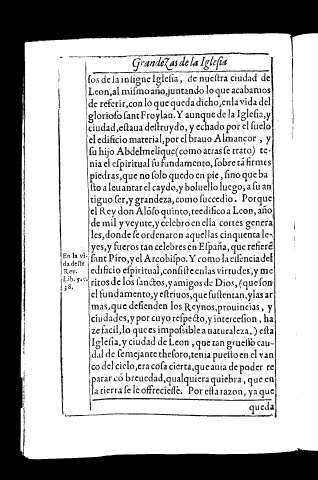 Grandezas de la Iglesia
sos de la insigne Iglesia, de nuestra ciudad de
Leon, al mismo año, juntando lo que acabamos
de referir, con lo que queda dicho, en la vida del
glorioso sant Froylan. Y aunque de la Iglesia, y
ciudad, estaua destruydo, y echado por el suelo
el edificio material, por el brauo Almançor, y
su hijo Abdelmelique (como atras se trato) te-
nia el espiritual su fundamento, sobre tā firmes
piedras, que no solo quedo en pie, sino que ba
sto a leuantar el caydo, y boluello luego, a su an
tiguo ser, y grandeza, como succedio. Porque
el Rey don Alōso quinto, reedifico a Leon, año
de mil y veynte, y celebro en ella cortes genera
les, donde se ordenaron aquellas cinquenta le-
yes, y fueros tan celebres en España, que refiere
En la vi
da deste
Rey.
Lib. 5. c.
38.
sant Piro, y el Arcobispo. Y como la essencia del
edificio espiritual, consiste en las virtudes, y me
ritos de los sanctos, y amigos de Dios, (que son
el fundamento, y estriuos, que sustentan, y las ar
mas, que defienden los Reynos, prouincias, y
ciudades, y por cuyo respecto, y intercesion, ha
ze facil, lo que es impossible a naturaleza,) esta
Iglesia, y ciudad de Leon, que tan gruesso cau-
dal de semejante thesoro, tenia puesto en el van
co del cielo, era cosa cierta, que auia de poder re
parar cō breuedad, qualquiera quiebra, que en
la tierra se le offreciesse. Por esta razon, ya que
queda